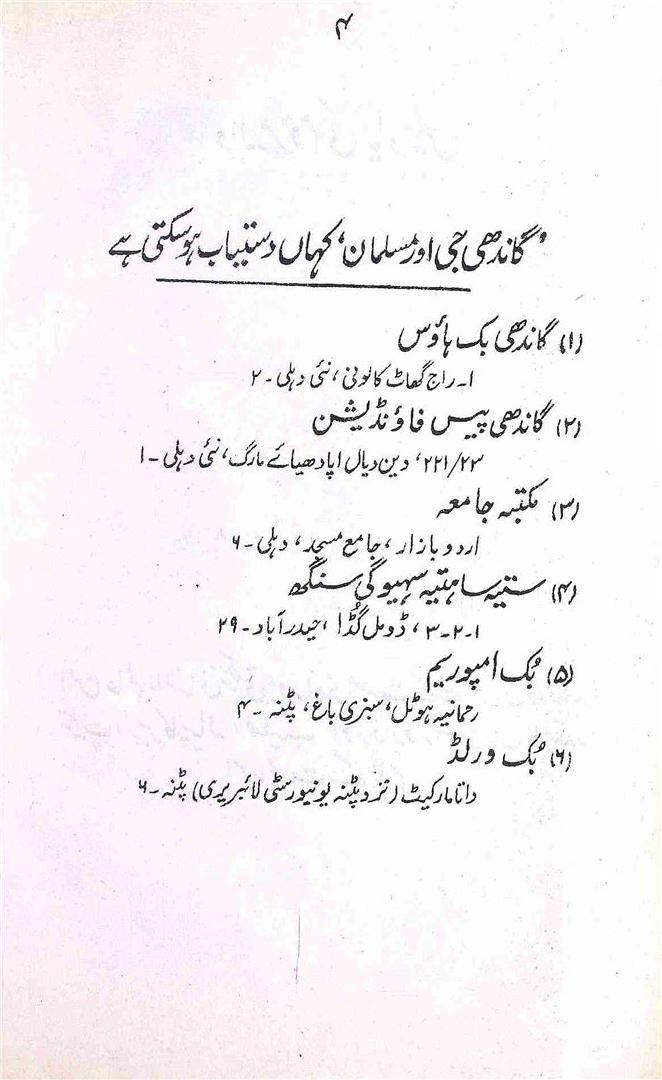 ۴
’گاندھی جی اور مسلمان‘ کہاں دستیاب ہو سکتی ہے
(۱) گاندھی بک ہاؤس
۱۔ راج گھاٹ کالونی، نئی دہلی - ۲
(۲) گاندھی پیس فاؤنڈیشن
۲۲۱/۲۳، دین دیال اپادھیائے مارگ، نئی دہلی - ۱
(۳) مکتبہ جامعہ
اردو بازار، جامع مسجد، دہلی - ۶
(۴) ستیہ ساہتیہ سہیوگی سنگھ
۱-۲-۳، ڈومل گُڈا، حیدرآباد - ۲۹
(۵) بُک امپوریم
رحمانیہ ہوٹل، سبزی باغ، پٹنہ - ۴
(۶) بُک ورلڈ
داتا مارکیٹ (نزد پٹنہ یونیورسٹی لائبریری) پٹنہ - ۶